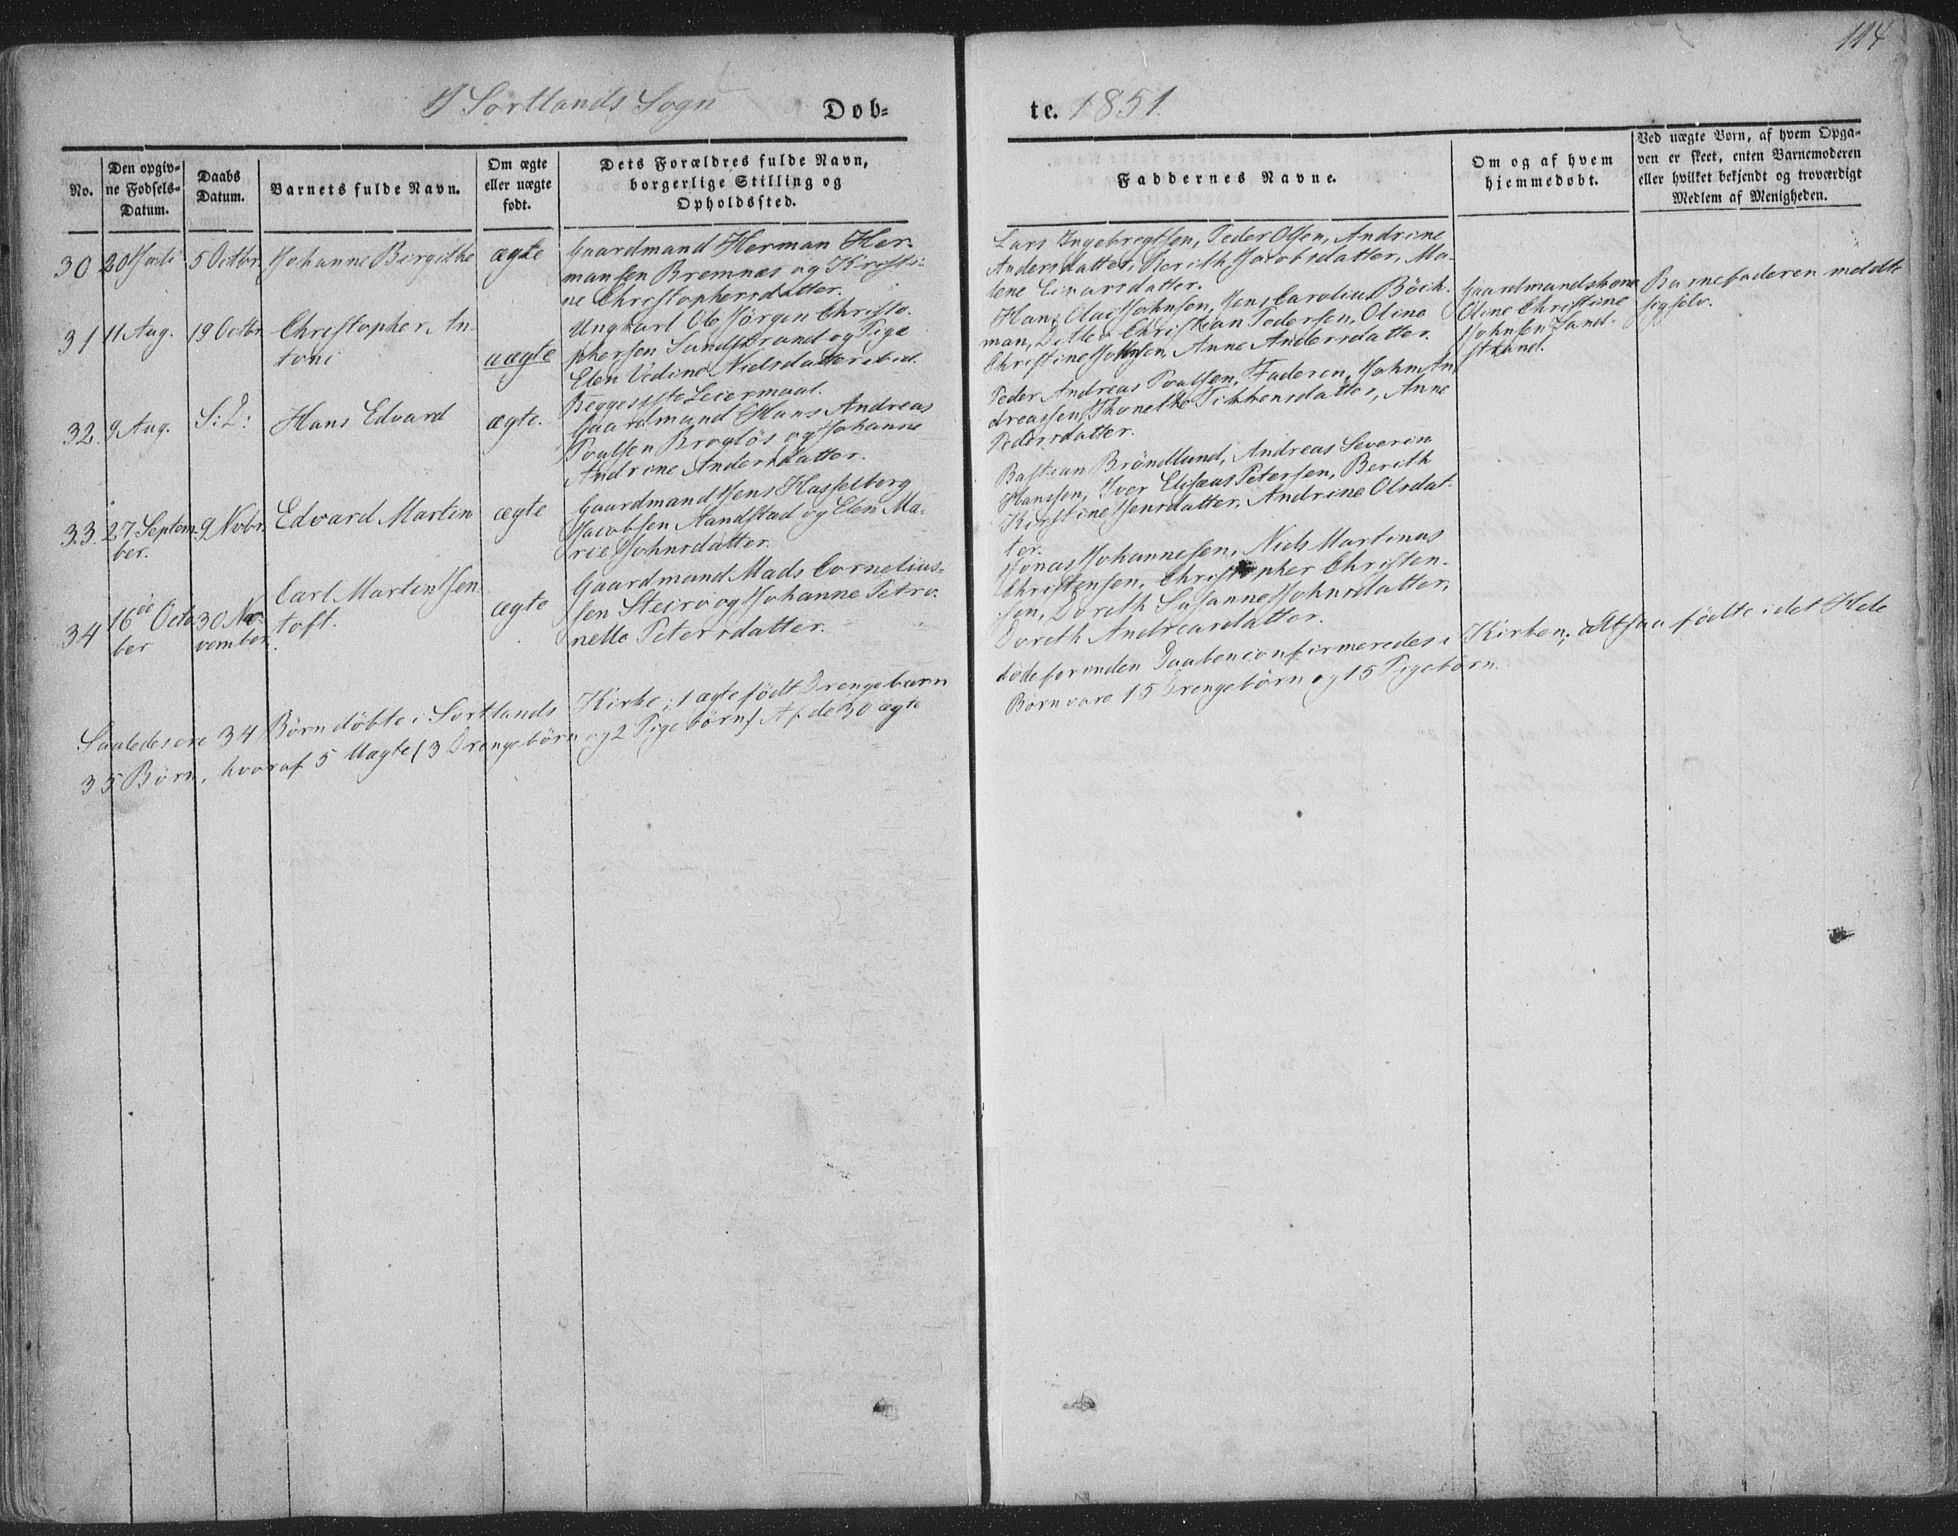 114
I Sortlands Sogn Døb-
te. 1851.
No.
Den opgiv-
ne Fødsels-
Datum.
Daabs
Datum.
Barnets fulde Navn.
Om ægte
eller uægte
født.
Dets Forældres fulde Navn,
borgerlige Stilling og
Opholdssted.
Faddernes Navne.
Om og af hvem
hjemmedøbt.
Ved uægte Børn, af hvem Opga-
ven er skeet, enten Barnemoderen
eller hvilket bekjendt og troværdigt
Medlem af Menigheden.
30 20 Juli 5 Octbr. Johanne Birgithe ægte
Gaardmand Herman Her-
mansen Bremnes og Kristi-
ne Christophersdatter.
Lars Ingebregtsen, Peder Olsen, Andrine
Andersdatter, Berith Jacobsdatter, Ma-
lene Einarsdatter.
31 11 Aug. 19 Octbr. Christopher An-
toni
uægte
Ungkarl Ole Jørgen Christo-
phersen Sandstrand og Pige
Elen Vedine Nielsdatter ibid.
Begges 1ste Leiermaal.
Hans Olai Johnsen, Jens Carolius Böch-
man, Christian Pedersen, Oline
Christine Johnsen, Anne Andersdatter.
Gaardmandskone
Oline Christine
Johnsen Sand-
strand.
Barnefaderen meldte
sig selv.
32. 9 Aug. S: D: Hans Edvard ægte.
Gaardmand Hans Andreas
Poulsen Brogløs og Johanne
Andrine Andersdatter.
Peder Andreas Poulsen, Faderen, John An-
dreassen, Thonethe Tikkensdatter, Anne
Pedersdatter.
33. 27 Septem-
ber.
9 Novbr. Edvard Martin ægte
Gaardmand Jens Hasselberg
Jacobsen Aandstad og Elen Ma-
rie Johnsdatter.
Bastian Bröndlund, Andreas Severin
Hanssen, Iver Eliseus Petersen, Berith
Kirstine Jensdatter, Andrine Olsdat-
ter.
34 16de Octo-
ber
30 No-
vember.
Carl Martin Jen-
toft.
ægte
Gaardmand Mads Cornelius-
sen Steiro og Johanne Petro-
nelle Petersdatter.
Jonas Johannesen, Niels Martinus
Christensen, Christopher Christen-
sen, Doreth Susanne Johnsdatter,
Doreth Andreasdatter.
Saaledes ere 34 Børn døbte i Sortlands Kirke; 1 ægte født Drengebarn
døde forinden Daaben confirmeredes i Kirken; Altsaa fødte i det Hele
35 Børn, hvoraf 5 Uægte (3 Drengebörn og 2 Pigebørn) Af de 30 ægte
Børn vare 15 Drengebørn og 15 Pigebørn.